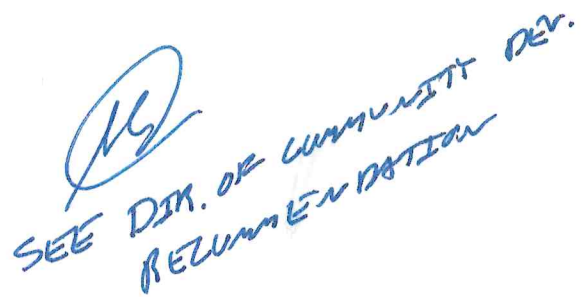 SEE DIR. OF COMMUNITY DEV.
RECOMMENDATION